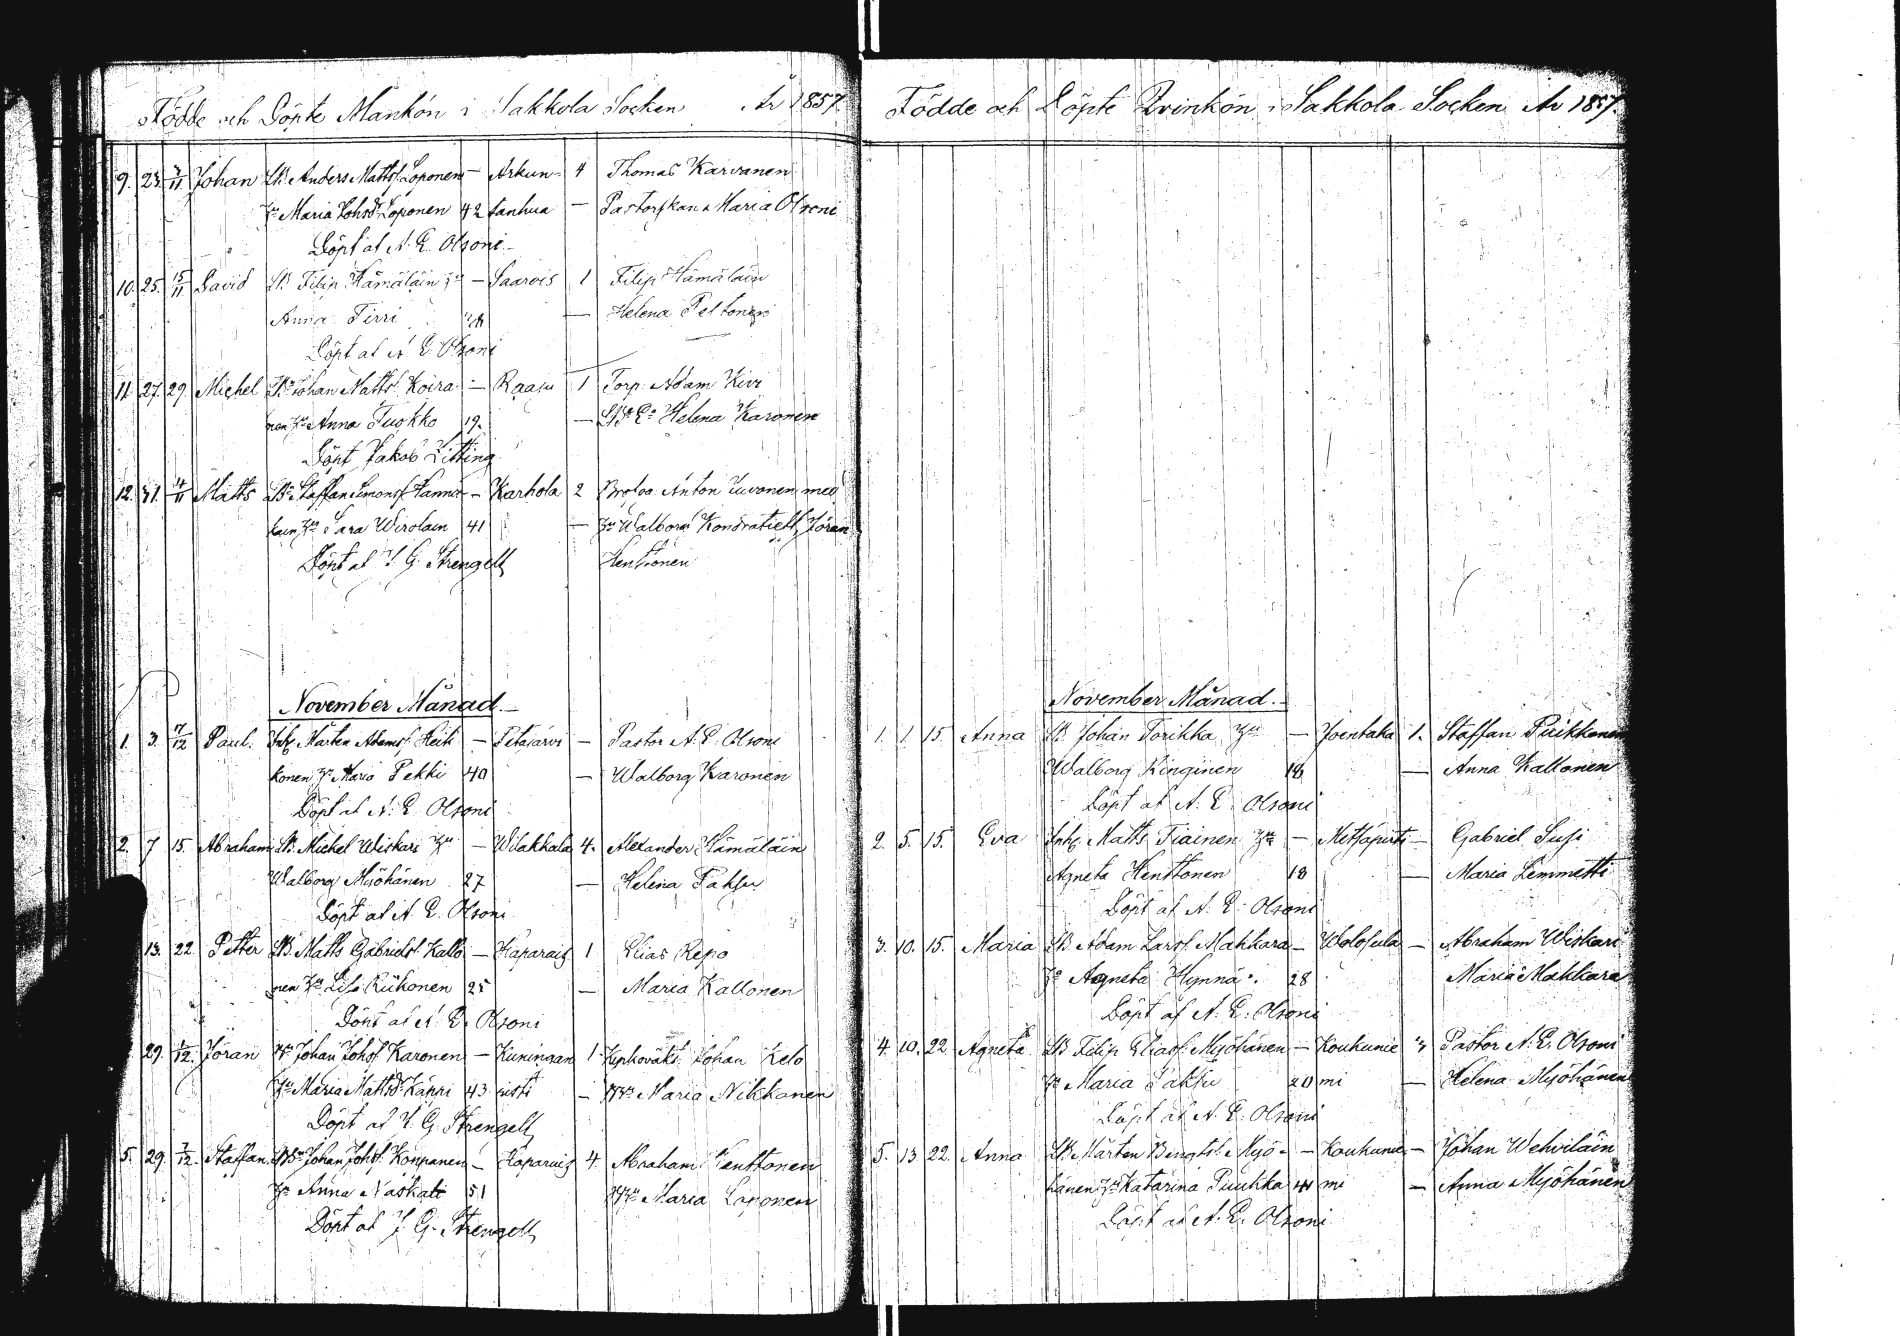 Födde och Döpte Mankön i Sakkola Socken År 1857.
9. 23. 3/11 Johan Anders Matts. Loponen — Arkun- 4 Thomas Karvanen
Maria Johsdr Loponen 42 tanhua — Maria Olsoni
Döpt af A. E. Olsoni
10. 25. 15/11 David Filip Hämäläin — Saarois 1 Filip Hämäläin
Anna Tirri — Helena Peltonen
Döpt af A. E. Olsoni
11. 27. 29. Michel Johan Matts. Koira- — Raasu 1 Torp. Adam Kivi
nen Anna Tuokko 19. — Helena Karonen
Döpt Jakob Litting
12. 31. 4/11 Matts Staffan Simons. — Karhola 2 Anton Juvonen med
Sara Wirolain 41 — Walborg Jöran
Henttonen
Döpt af J. G. Strengell
November Månad.
1. 3. 7/12 Paul. Inh. Mårten Adams. Heik — Petäjärvi — Pastor A. E. Olsoni
konen Maria Pekki 40 — Walborg Karonen
Döpt af A. E. Olsoni
2. 7 15. Abraham Michel Wiskari — Wilakkala 4. Alexander Hämäläin
Walborg Myöhänen 27 — Helena Paksu
Döpt af A. E. Olsoni
13. 22. Petter Matts Gabriels. Kallo- — Haparais 1 Elias Repo
nen Lisa Kiikonen 25 — Maria Kallonen
Döpt af A. E. Olsoni
29. 1/12. Jöran Johan Johs. Karonen — Kiiningan 1 Johan Kelo
Maria Mattsdr Käppi 43 justi — Maria Nikkanen
Döpt af J. G. Strengell
5. 29. 7/12. Staffan Johan Johs. Konpanen — Haparais 4 Abraham Henttonen
Anna Naskali 51 Maria Loponen
Döpt af J. G. Strengell
Födde och Döpte Qvinkön i Sakkola Socken År 1857.
November Månad.
1. 1. 15. Anna Johan Torikka — Joentaka 1. Staffan Puikkonen
Walborg Kinginen 18 — Anna Kallonen
Döpt af A. E. Olsoni
2. 5. 15. Eva Inh. Matts Tiainen — Metsäpirti — Gabriel Susi
Agneta Henttonen 18 — Maria Lemmetti
Döpt af A. E. Olsoni
3. 10. 15. Maria Adam Lars. Mahkara — Wolosula — Abraham Wiskari
Agneta Hynnä 28 Maria Mahkara
Döpt af A. E. Olsoni
4. 10. 22 Agneta Filip Elias. Myöhänen — Koukunie Pastor A. E. Olsoni
Maria Paksu 20 mi — Helena Myöhänen
Döpt af A. E. Olsoni
5. 13 22. Anna Mårten Bengts. Myö- — Koukunie — Johan Wehviläin
hänen Katarina Puukka 44 mi — Anna Myöhänen
Döpt af A. E. Olsoni